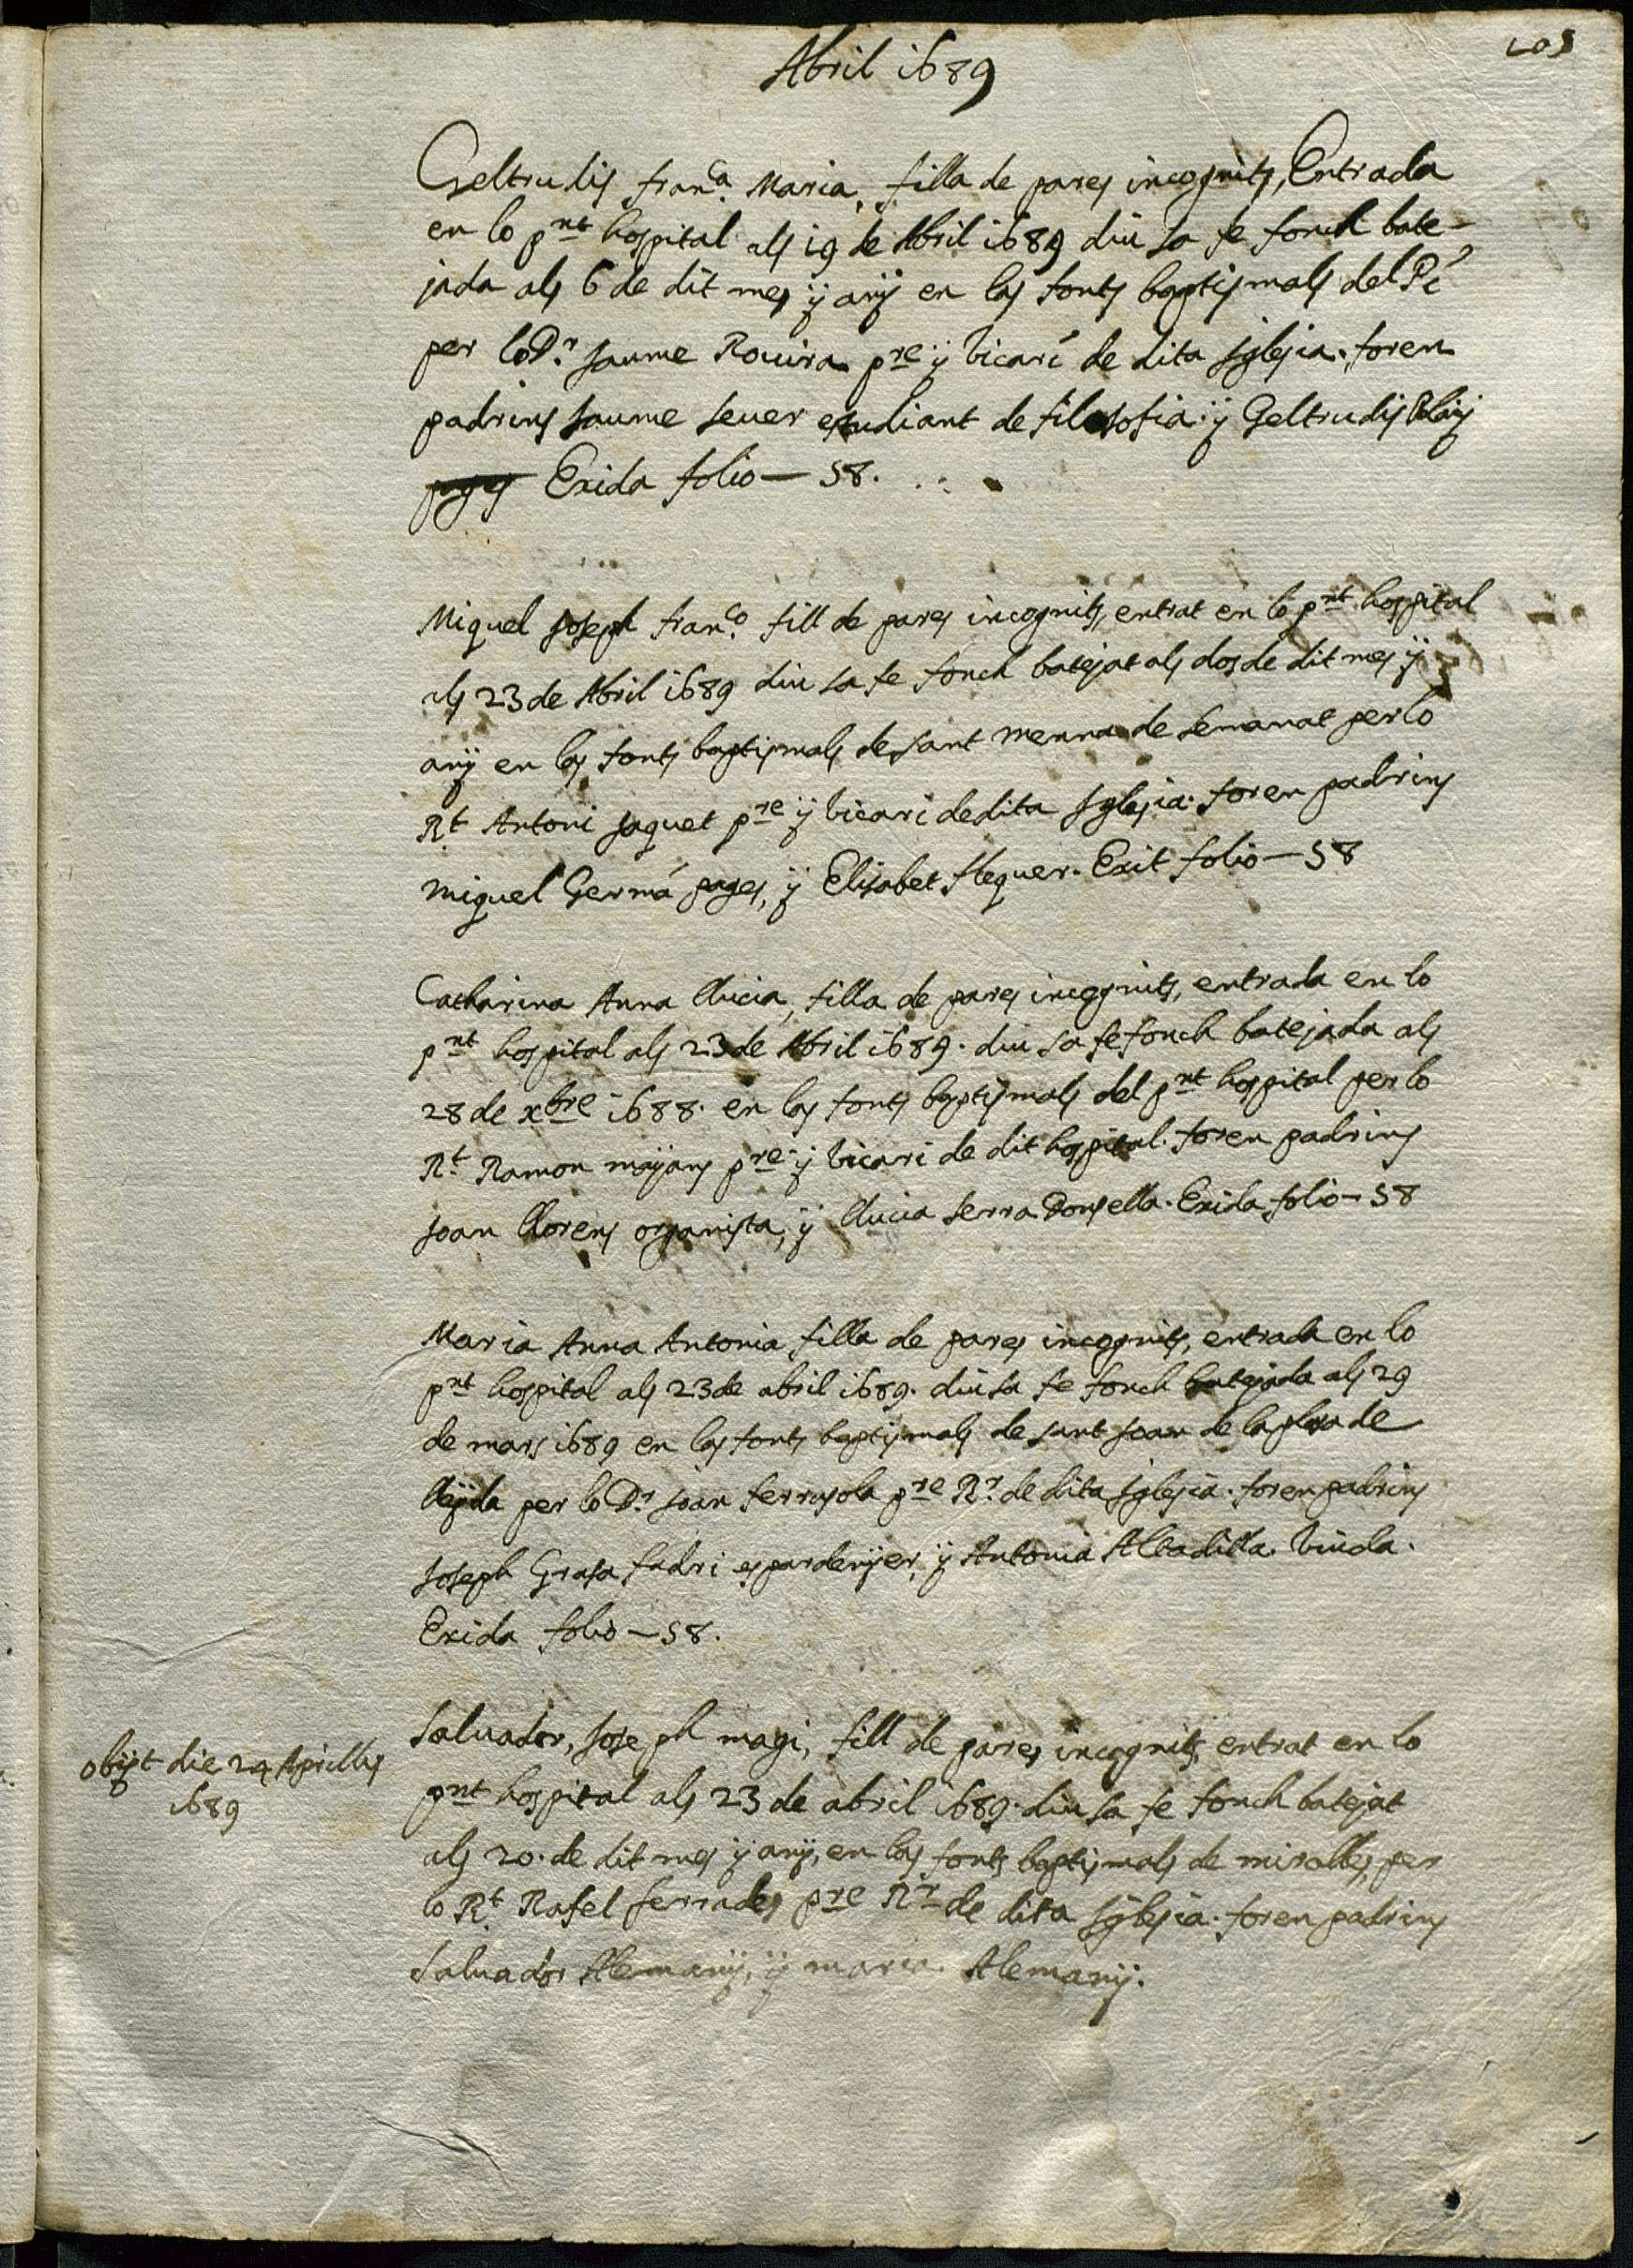 Abril 1689
Geltrudis fran.ca Maria, filla de pares incognits, Entrada
en lo pnt hospital als 19 de Abril 1689 diu sa fe fonch bate-
jada als 6 de dit mes ÿ anÿ en las fonts baptismals del Pi
per lo Dr. Jaume Rouira pre ÿ vicari de dita Iglesia. foren
padrins Jaume seuer estudiant de filosofia ÿ Geltrudis
Exida folio — 58.
Miquel Joseph fran.co fill de pares incognits, entrat en lo pnt hospital
als 23 de Abril 1689 diu sa fe fonch batejat als dos de dit mes ÿ
anÿ en las fonts baptismals de sant menna de semanat per lo
Rt. Antoni Jaquet pre ÿ vicari de dita Iglesia. foren padrins
miquel Germá pages, ÿ Elisabet flequer. Exit folio — 58
Catharina Anna llucia, filla de pares incognits, entrada en lo
pnt hospital als 23 de Abril 1689. diu sa fe fonch batejada als
28 de xbre 1688. en las fonts baptismals del pnt hospital per lo
Rt. Ramon maÿans pre ÿ vicari de dit hospital. foren padrins
Joan llorens organista, ÿ llucia serra Donsella. Exida folio — 58
Maria Anna Antonia filla de pares incognits, entrada en lo
pnt hospital als 23 de abril 1689. diu sa fe fonch batejada als 29
de mars 1689 en las fonts baptismals de sant Joan de la plasa de
lleÿda per lo Dr. Joan ferrusola pre Rr. de dita Iglesia. foren padrins
Joseph Grasa fadri espardenÿer, ÿ Antonia Altadilla. viuda.
Exida folio — 58.
saluador, Joseph magi, fill de pares incognits, entrat en lo
pnt hospital als 23 de abril 1689. diu sa fe fonch batejat
als 20. de dit mes ÿ anÿ, en las fonts baptismals de miralles, per
lo Rt. Rafel ferrades pre Rr de dita Iglesia. foren padrins
saluador Alemanÿ, ÿ maria Alemanÿ.
obijt die 24 Aprillis
1689